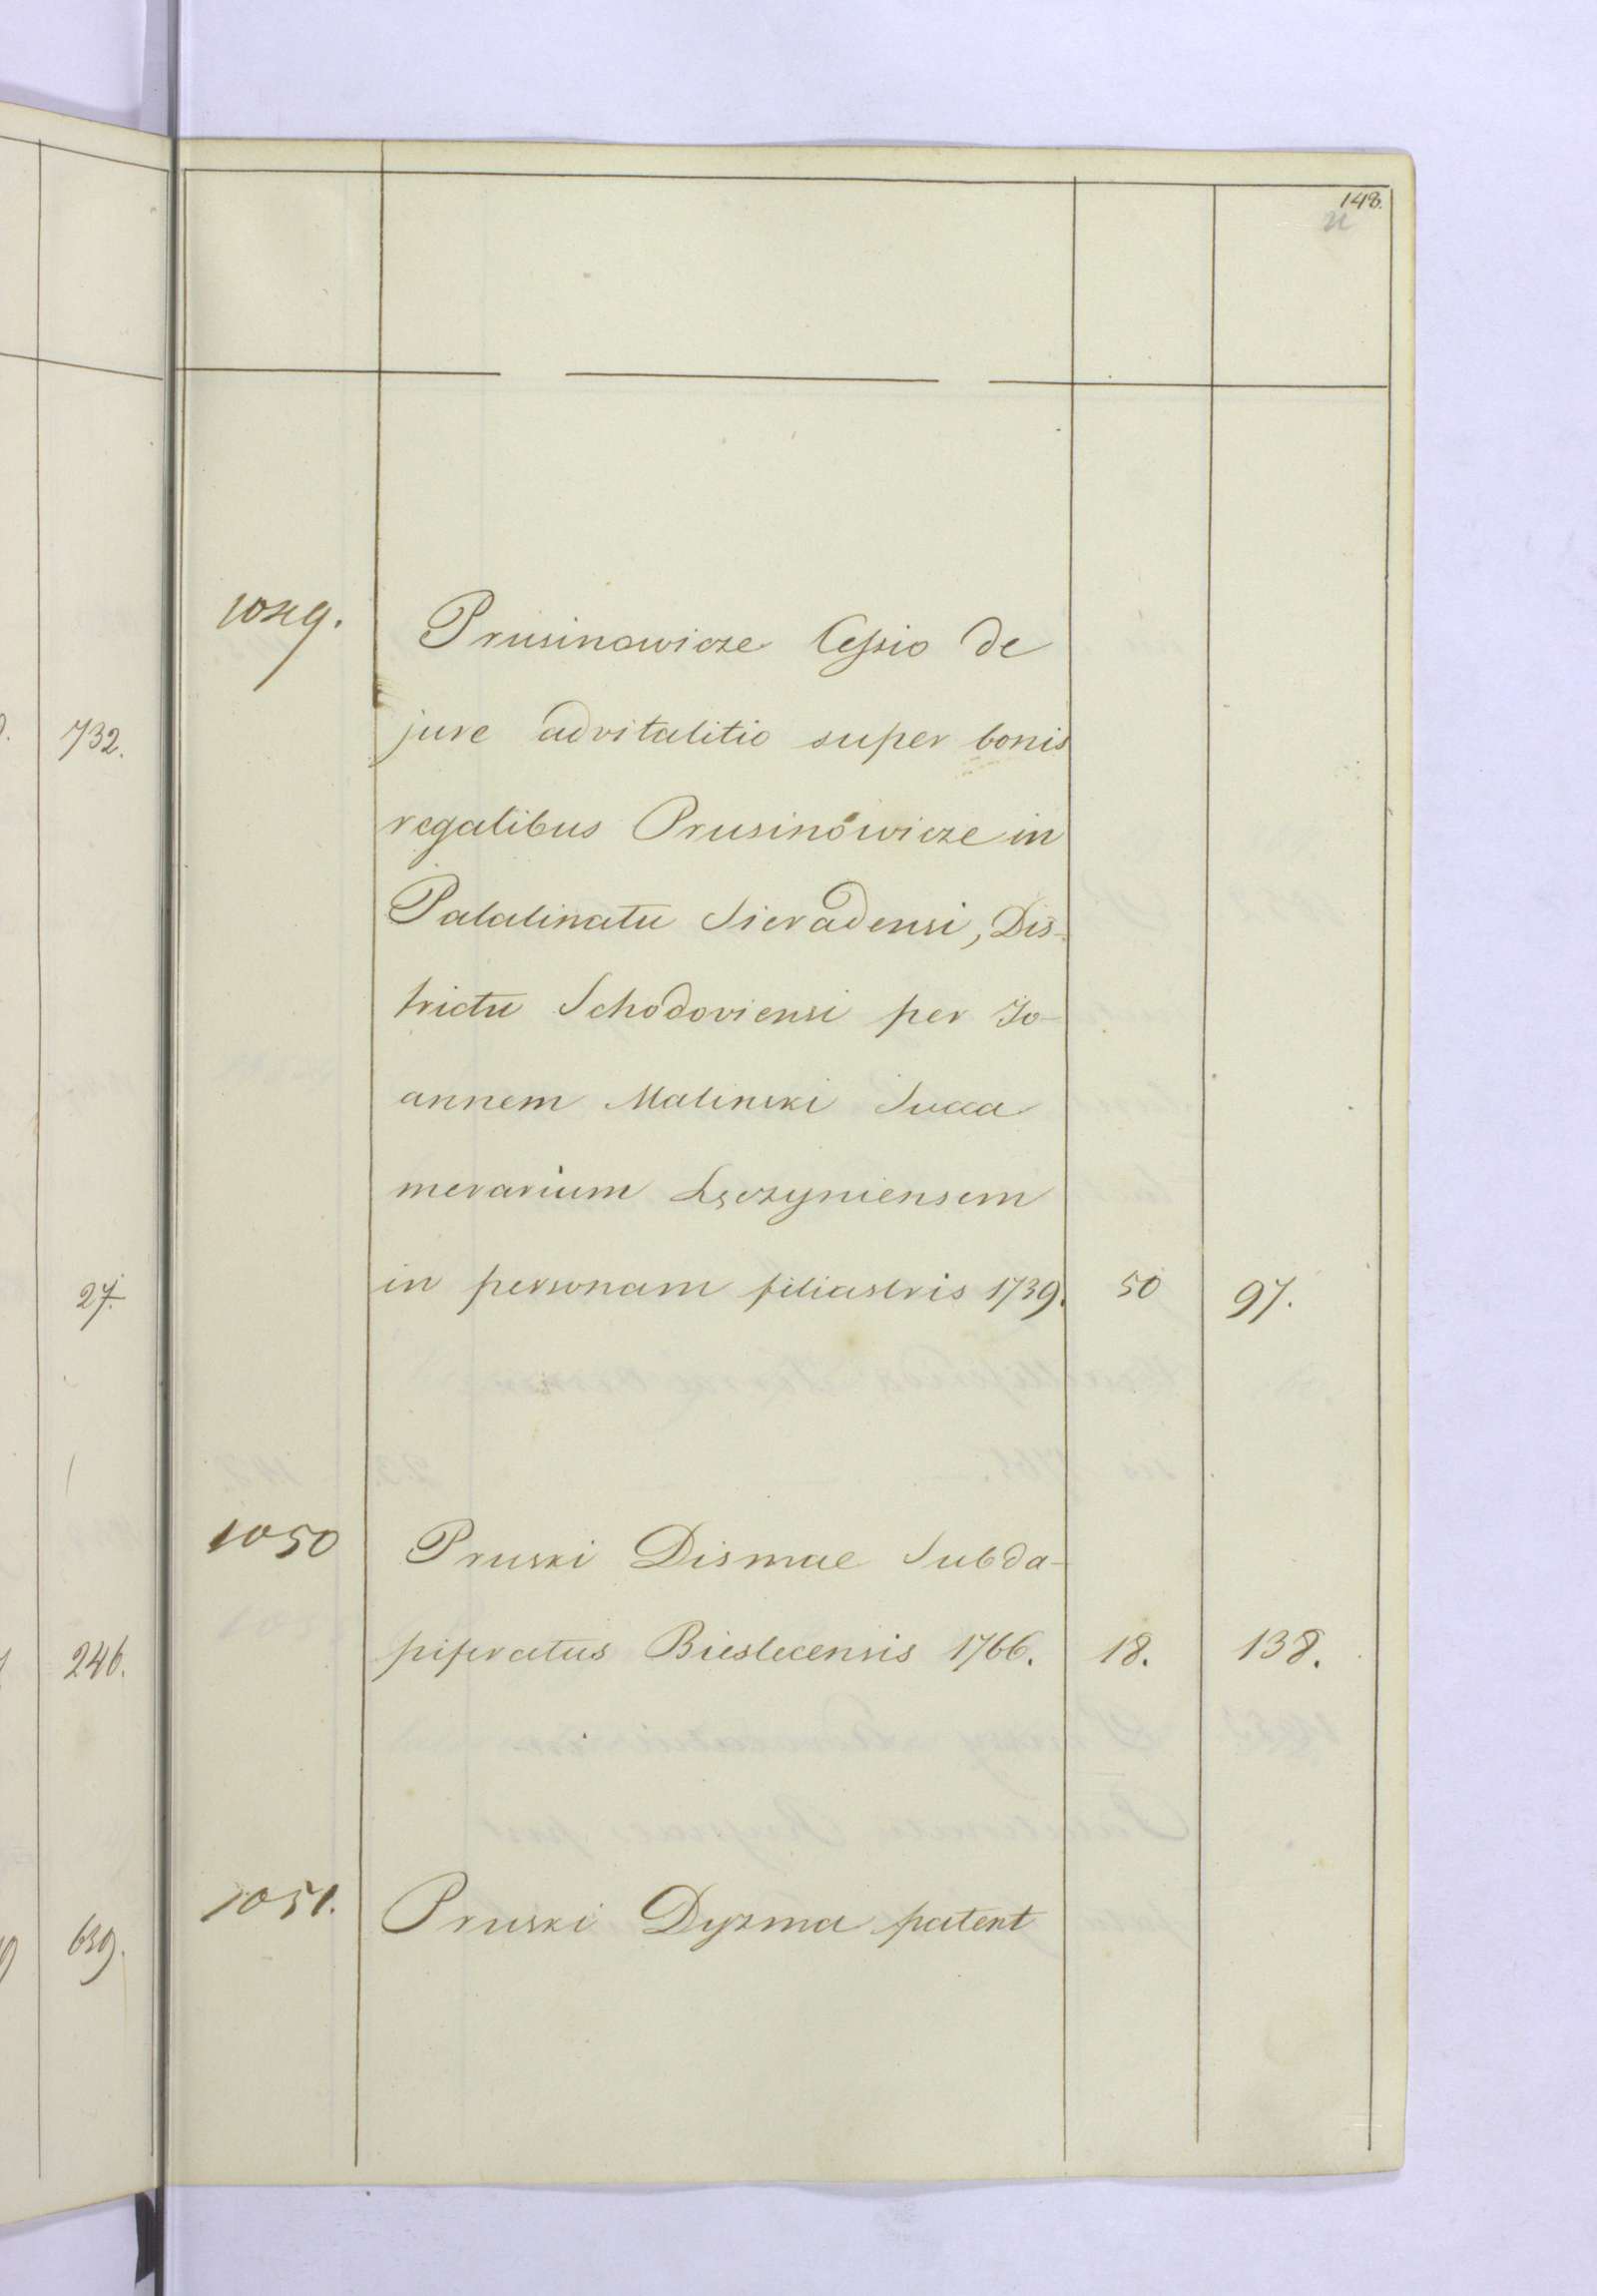 148.
732.
27.
246.
639.
1049. Prusinowicze Cessio de
jure advitalitio super bonis
regalibus Prusinowicze in
Palatinatu Sieradensi, Dis-
trictu Schodoviensi per Jo-
annem Malinski Succa
merarium Lęczyniensem
in personam filiastris 1739. 50 97.
1050 Pruski Dismae Subda-
piferatus Bieslecensis 1766. 18. 138.
1051. Pruski Dyzma patent